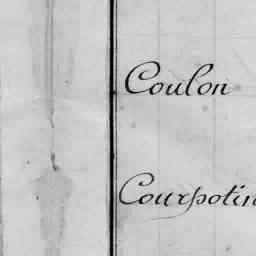 Coulon
Courpotin